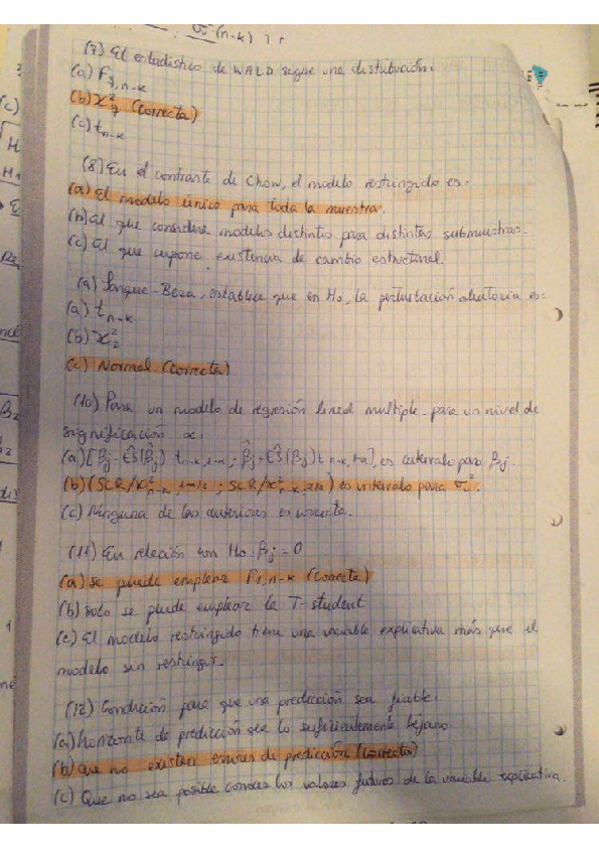 σ²(n-k)
(7) El estadístico de WALD sigue una distribución:
(a) F q, n-k
(b) χ²q (Correcta)
(c) t n-k
(8) En el contraste de Chow, el modelo restringido es:
(a) El modelo único para toda la muestra.
(b) El que considera modelos distintos para distintas submuestras.
(c) El que supone existencia de cambio estructural.
(9) Jarque-Bera, establece que en H0, la perturbación aleatoria es:
(a) t n-k
(b) χ²2
(c) Normal (Correcta)
(10) Para un modelo de regresión lineal multiple, para un nivel de
significación α:
(a) [β̂j - ÊS(β̂j) t n-k, 1-α ; β̂j + ÊS(β̂j) t n-k, 1-α], es intervalo para βj.
(b) (SCR/χ² n-k, 1-α/2 ; SCR/χ² n-k, α/2) es intervalo para σ²u.
(c) Ninguna de las anteriores es correcta.
(11) En relación con H0: βj = 0
(a) Se puede emplear F1, n-k (Correcta)
(b) Solo se puede emplear la T-student
(c) El modelo restringido tiene una variable explicativa más que el
modelo sin restringir.
(12) Condición para que una predicción sea fiable:
(a) horizonte de predicción sea lo suficientemente lejano
(b) que no existan errores de predicción (Correcta)
(c) Que no sea posible conocer los valores futuros de la variable explicativa.